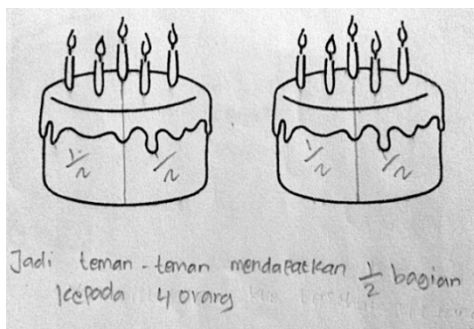 1/2 1/2 1/2 1/2
Jadi teman-teman mendapatkan 1/2 bagian
kepada 4 orang